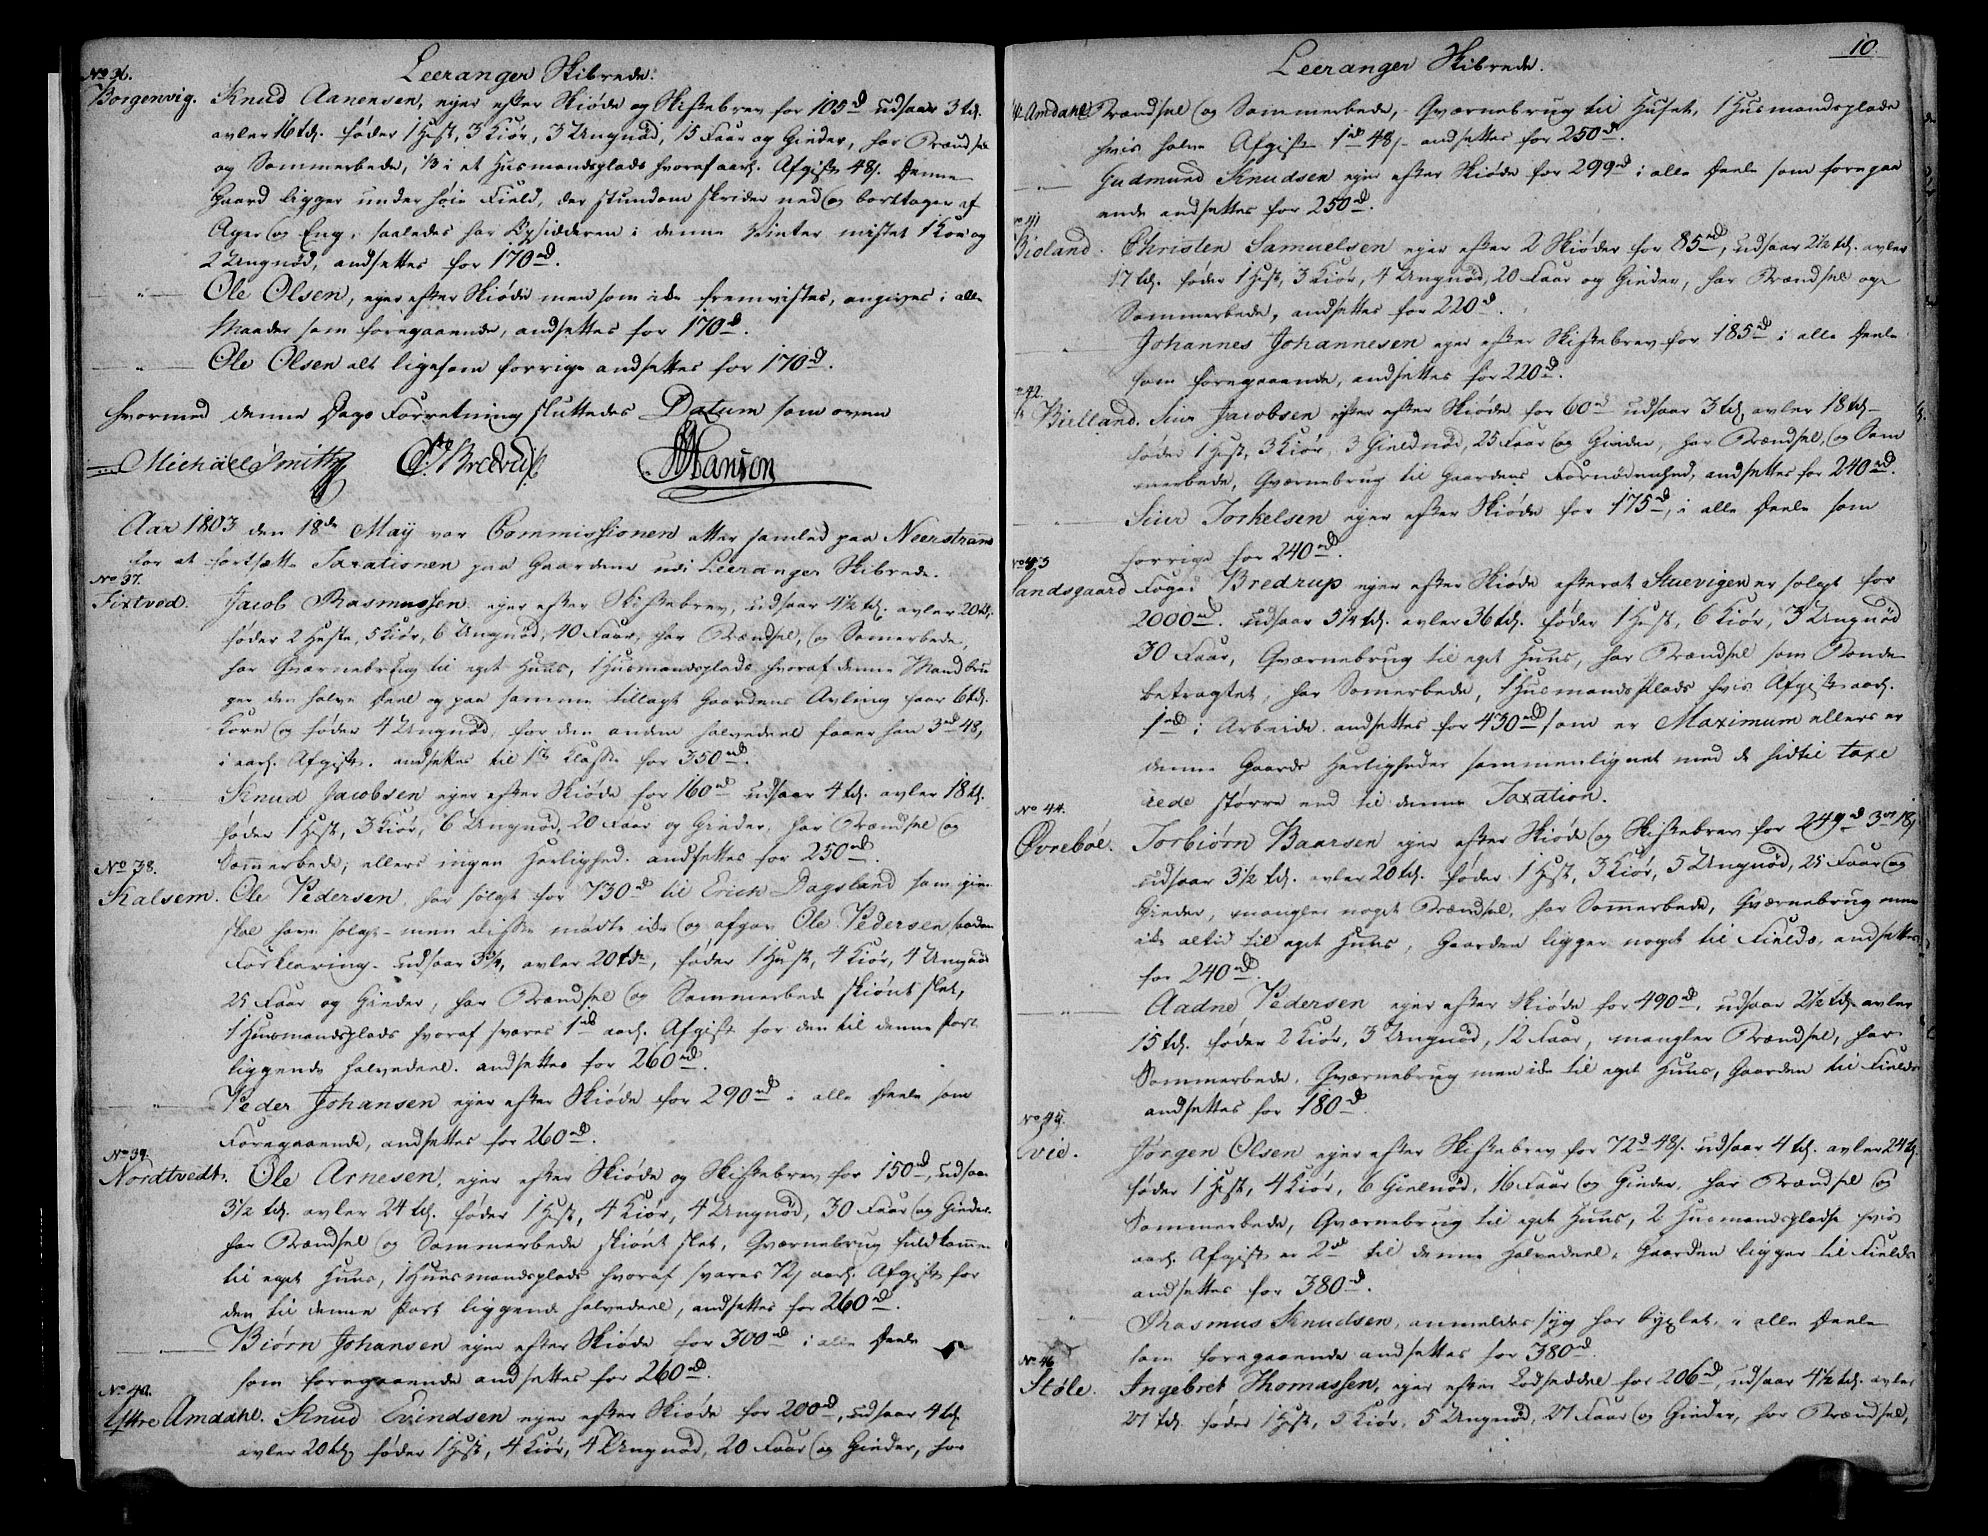 Leeranger Skibrede.
No 36.
Borgenvig. Knud Aanensen, ejer efter Skiøde og Skiftebrev for 105 rd udsaar 3 td.
avler 16 td. føder 1 Hest, 3 Kiør, 3 Ungnød, 15 Faar og Gieder, har Brændsel
og Sommerbede, 1/3 i et Husmandsplads hvoraf aarl. Afgift 48 s. Denne
Gaard ligger under høie Field, der stundom skrider ned og borttager af
Ager og Eng, saaledes har Opsidderen i denne Vinter mistet 1 Koe og
2 Ungnød, andsettes for 170 rd.
" Ole Olsen, ejer efter Skiøde men som ikke fremvistes, angives i alle
Maader som foregaaende, andsettes for 170 rd.
" Ole Olsen alt ligesom forrige andsettes for 170 rd.
Hvormed denne Dags Forretning sluttedes Datum som oven
Michäel Smith Bredrup Hanson
Aar 1803 den 18de May var Commissionen atter samled paa Neerstrand
for at fortsætte Taxationen paa Gaardene udi Leeranger Skibrede.
No 37.
Tixtved. Jacob Rasmussen ejer efter Skiftebrev, udsaar 4 1/2 td. avler 20 td.
føder 2 Heste, 5 Kiør, 6 Ungnød, 40 Faar, har Brændsel, og Somerbede,
har Qværnebrug til eget Huus, 1 Husmandsplads hvoraf denne Mand bru
ger den halve Deel og paa samme tillagt Gaardens Avling saar 6 td.
Korn og føder 4 Ungnød, for den anden halvedeel faaer han 3 rd 48 s
i aarl. Afgift. andsettes til 1ste Klasse for 350 rd.
" Knud Jacobsen ejer efter Skiøde for 160 rd udsaar 4 td. avler 18 td.
føder 1 Hest, 3 Kiør, 6 Ungnød, 20 Faar og Gieder, har Brændsel og
Somerbede, ellers ingen Herlighed. andsettes for 250 rd.
No 38.
Kalsem. Ole Pedersen, har solgt for 730 rd til Erich Dagsland som igien
skal have solgt - men disse mødte ikke og afgav Ole Pedersen saadan
Forklaring - udsaar 3 3/4, avler 20 tdr, føder 1 Hest, 4 Kiør, 4 Ungnød
25 Faar og Gieder, har Brændsel og Sommerbede skiønt slet,
1 Husmandsplads hvoraf svares 1 rd aarl. Afgift for den til denne Part
liggende halvedeel. andsettes for 260 rd.
" Peder Johansen ejer efter Skiøde for 290 rd i alle Deele som
Foregaaende, andsettes for 260 rd.
No 39.
Nordtvedt. Ole Arnesen, ejer efter Skiøde og Skiftebrev for 150 rd, udsaar
3 1/2 td. avler 24 td. føder 1 Hest, 4 Kiør, 4 Ungnød, 30 Faar og Gieder
har Brændsel og Sommerbede skiønt slet, Qværnebrug fuldkommen
til eget Huus, 1 Huusmandsplads hvoraf svares 72 s aarl. Afgift for
den til denne Part liggende halvedeel, andsettes for 260 rd.
" Biørn Johansen ejer efter Skiøde for 300 rd i alle Deele
som foregaaende andsettes for 260 rd.
No 40.
Yttre Amdahl. Knud Evindsen ejer efter Skiøde for 200 rd, udsaar 4 td
avler 20 td føder 1 Hest, 4 Kiør, 4 Ungnød, 20 Faar og Gieder, har
10.
Leeranger Skibrede.
Amdahl. Brændsel og Sommerbede, Qværnebrug til Huset, 1 Husmandsplads
hvis halve Afgift 1 rd 48 s andsettes for 250 rd.
" Gudmund Knudsen ejer efter Skiøde for 299 rd i alle Deele som foregaa
ende andsettes for 250 rd.
No 41.
Bioland. Christen Samuelsen ejer efter 2 Skiøder for 85 rd, udsaar 2 1/2 td. avler
17 td. føder 1 Hest, 3 Kiør, 4 Ungnød, 20 Faar og Gieder, har Brændsel og
Sommerbede, andsettes for 220 rd.
" Johannes Johannesen ejer efter Skiftebrev for 185 rd i alle Deele
som foregaaende, andsettes for 220 rd.
No 42.
Bielland. Siur Jacobsen ejer efter Skiøde for 60 rd udsaar 3 td, avler 18 td
føder 1 Hest, 3 Kiør, 3 Gieldnød, 25 Faar og Gieder, har Brændsel, og Som
merbede, Qværnebrug til Gaardens Fornødenhed, andsettes for 240 rd.
" Siur Torkelsen ejer efter Skiøde for 175 rd, i alle Deele som
forrige for 240 rd.
No 43
Sandsgaard Foged Bredrup ejer efter Skiøde efterat Stuevigen er solgt for
2000 rd. udsaar 5 1/4 td. avler 36 td. føder 1 Hest, 6 Kiør, 3 Ungnød
30 Faar, Qværnebrug til eget Huus, har Brændsel som Bonde
betragtet, har Somerbede, 1 Husmands Plads hvis Afgift aarl.
1 rd i Arbeide. andsettes for 430 rd som er Maximum ellers er
denne Gaards Herligheder sammenlignet med de hidtil taxe
rede større end til denne Taxation.
No 44.
Øvrebøe. Torbiørn Baarsen ejer efter Skiøde og Skiftebrev for 249 rd 3 ort 18 s
udsaar 3 1/2 td. avler 20 td. føder 1 Hest, 3 Kiør, 5 Ungnød, 25 Faar og
Gieder, mangler noget Brændsel, har Somerbede, Qværnebrug men
ikke altid til eget Huus, Gaarden ligger noget til Fields, andsettes
for 240 rd.
" Aadne Pedersen ejer efter Skiøde for 490 rd, udsaar 2 1/2 td. avler
15 td. føder 2 Kiør, 3 Ungnød, 12 Faar, mangler Brændsel, har
Sommerbede, Qværnebrug men ikke til eget Huus, Gaarden til Fields
andsettes for 180 rd.
No 45.
vie. Jörgen Olsen ejer efter Skiftebrev for 72 rd 48 s. udsaar 4 td. avler 24 td.
føder 1 Hest, 4 Kiør, 6 Gielnød, 16 Faar og Gieder, har Brændsel og
Sommerbede, Qværnebrug til eget Huus, 2 Husmandspladse hvis
aarl. Afgift er 2 rd til denne halvedeel, Gaarden ligger til Fields
andsettes for 380 rd.
Rasmus Knudsen, anmeldes syg har byxlet, i alle Deele
som foregaaende andsettes for 380 rd.
No 46
Støle. Ingebret Thomassen, ejer efter Lodseddel for 206 rd, udsaar 4 1/2 td. avler
27 td. føder 1 Hest, 5 Kiør, 5 Ungnød, 27 Faar og Gieder, har Brændsel,